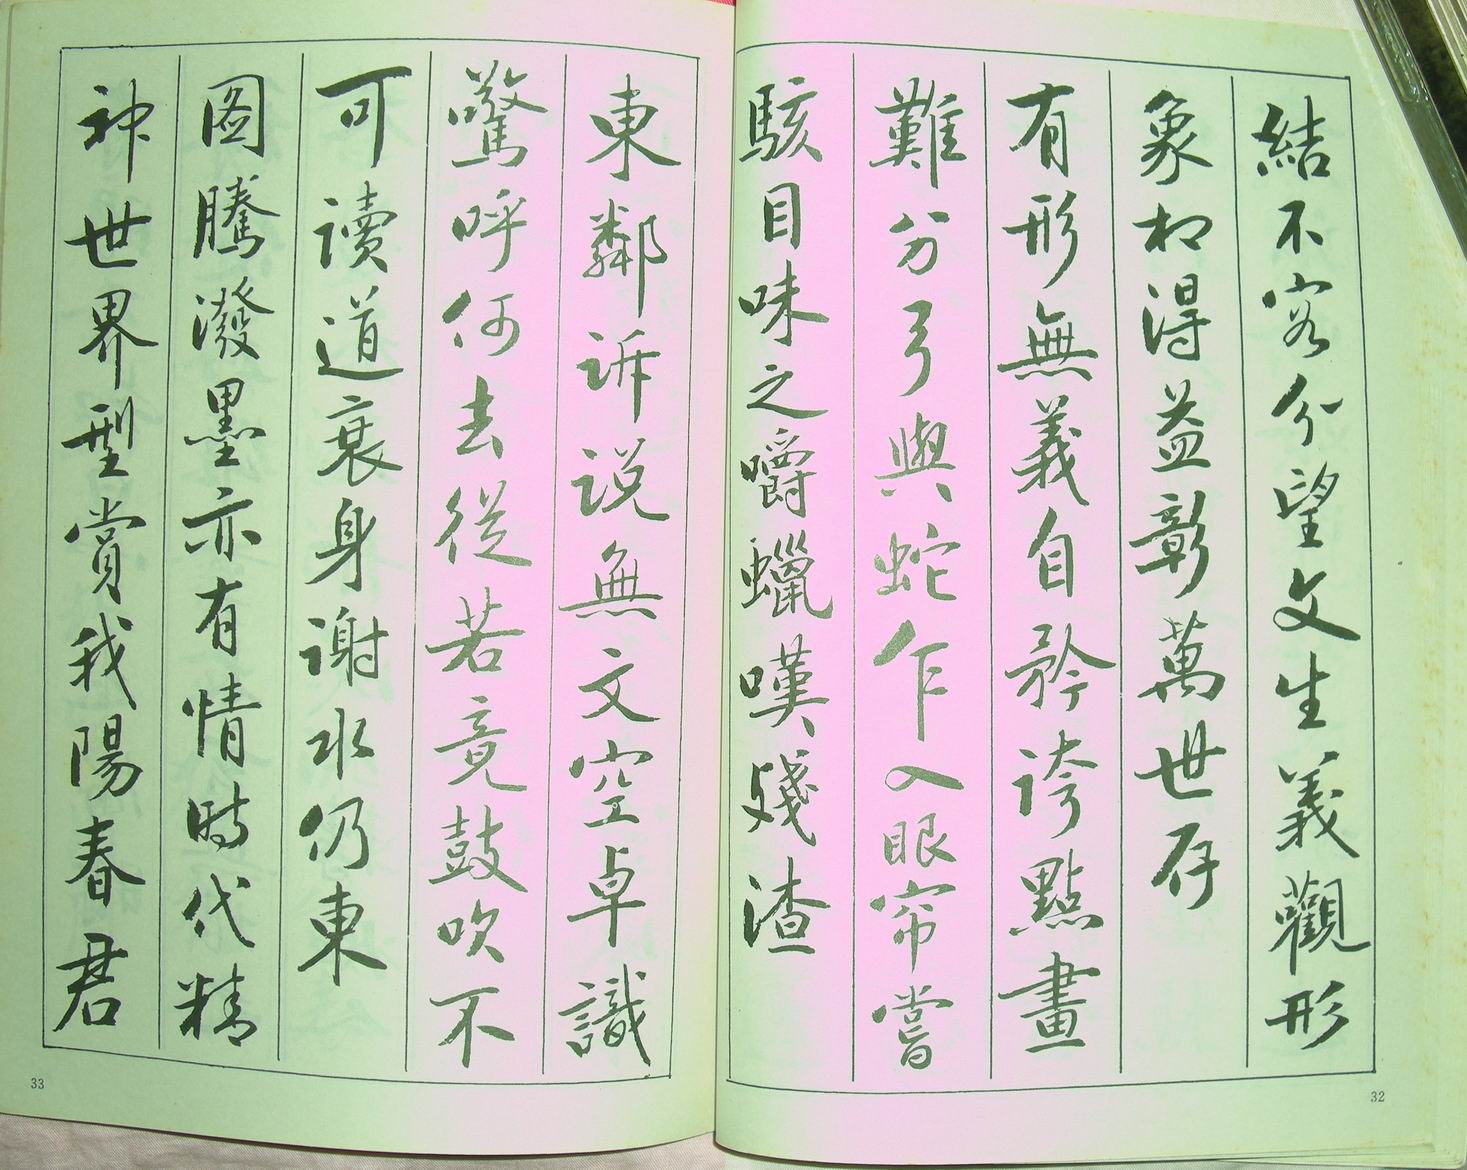 結不容分望文生義觀形
象相得益彰萬世存
有形無義自矜誇點畫
難分弓與蛇乍入眼帘嘗
駭目味之嚼蠟嘆殘渣
32
東鄰訴説無文空卓識
驚呼何去從若竟鼓吹不
可讀道衰身謝水仍東
圖騰潑墨亦有情時代精
神世界型賞我陽春君
33